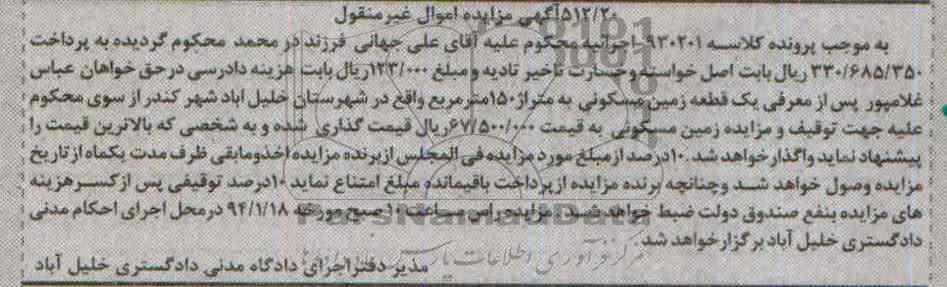 ۵۱۲/۲۰آگهی مزایده اموال غیرمنقول
به موجب پرونده کلاسه ۹۳۰۲۰۱ اجراییه محکوم علیه آقای علی جهانی فرزند در محمد محکوم گردیده به پرداخت
۳۳۰/۶۸۵/۳۵۰ ریال بابت اصل خواسته وخسارت تاخیر تادیه و مبلغ ۱۲۳/۰۰۰ریال بابت هزینه دادرسی درحق خواهان عباس
غلامپور پس از معرفی یک قطعه زمین مسکونی به متراژ ۱۵۰مترمربع واقع در شهرستان خلیل اباد شهر کندر از سوی محکوم
علیه جهت توقیف و مزایده زمین مسکونی به قیمت ۶۷/۵۰۰/۰۰۰ریال قیمت گذاری شده و به شخصی که بالاترین قیمت را
پیشنهاد نماید واگذارخواهد شد .۱۰درصد ازمبلغ مورد مزایده فی المجلس ازبرنده مزایده اخذومابقی ظرف مدت یکماه ازتاریخ
مزایده وصول خواهد شد وچنانچه برنده مزایده ازپرداخت باقیمانده مبلغ امتناع نماید ۱۰درصد توقیفی پس ازکسرهزینه
های مزایده بنفع صندوق دولت ضبط خواهد شد. مزایده راس ساعت ۱۰ صبح مورخه ۹۴/۱/۱۸ درمحل اجرای احکام مدنی
دادگستری خلیل آباد برگزارخواهد شد
مدیر دفتراجرای دادگاه مدنی دادگستری خلیل آباد